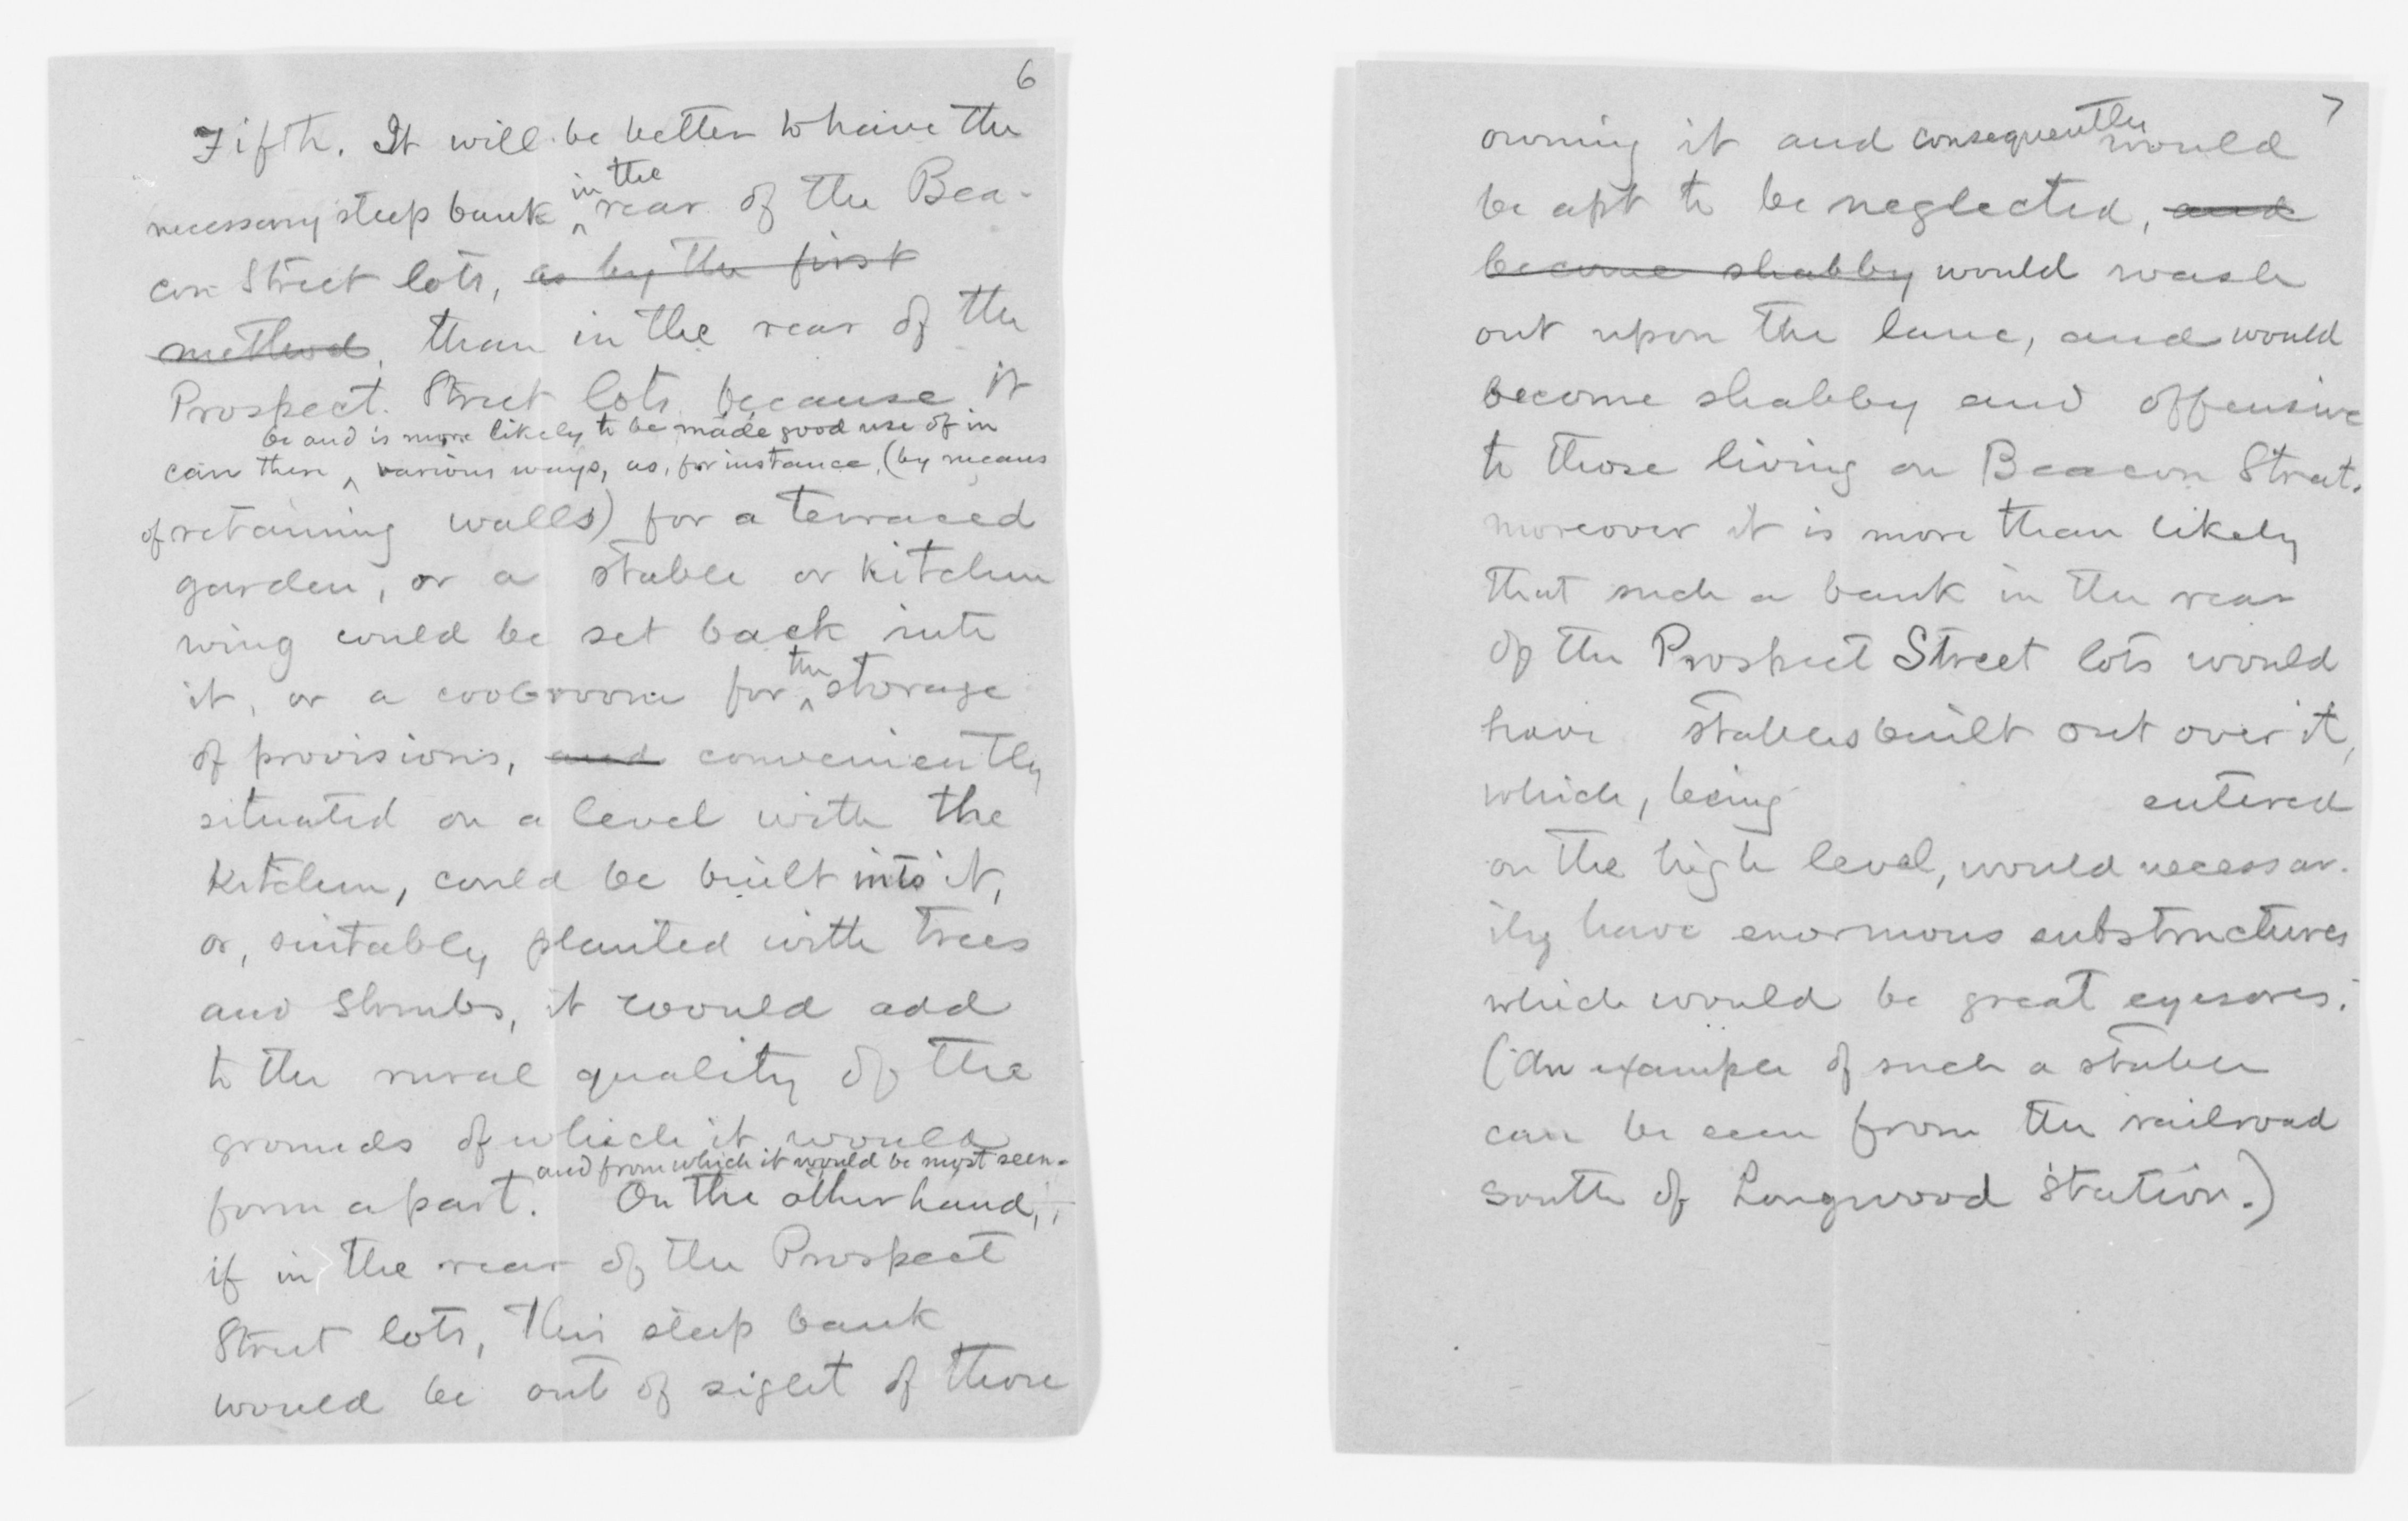 6
Fifth. It will be better to have the
necessary steep bank in the rear of the Bea-
con Street lots, as by the first
method, than in the rear of the
Prospect Street lots because it
be and is more likely to be made good use of in
can then various ways, as, for instance, (by means
of retaining walls) for a terraced
garden, or a stable or kitchen
wing could be set back into
it, or a coolroom for the storage
of provisions, and conveniently
situated on a level with the
kitchen, could be built into it,
or, suitably planted with trees
and shrubs, it would add
to the rural quality of the
grounds of which it would
and from which it would be most seen.
form a part. On the other hand,
if in the rear of the Prospect
Street lots, this steep bank
would be out of sight of those
7
owning it and consequently would
be apt to be neglected, and
become shabby would wash
out upon the lane, and would
become shabby and offensive
to those living on Beacon Street.
moreover it is more than likely
that such a bank in the rear
of the Prospect Street lots would
have stables built out over it,
which, being entered
on the high level, would necessar-
ily have enormous substructures
which would be great eyesores.
(An example of such a stable
can be seen from the railroad
south of Longwood Station.)